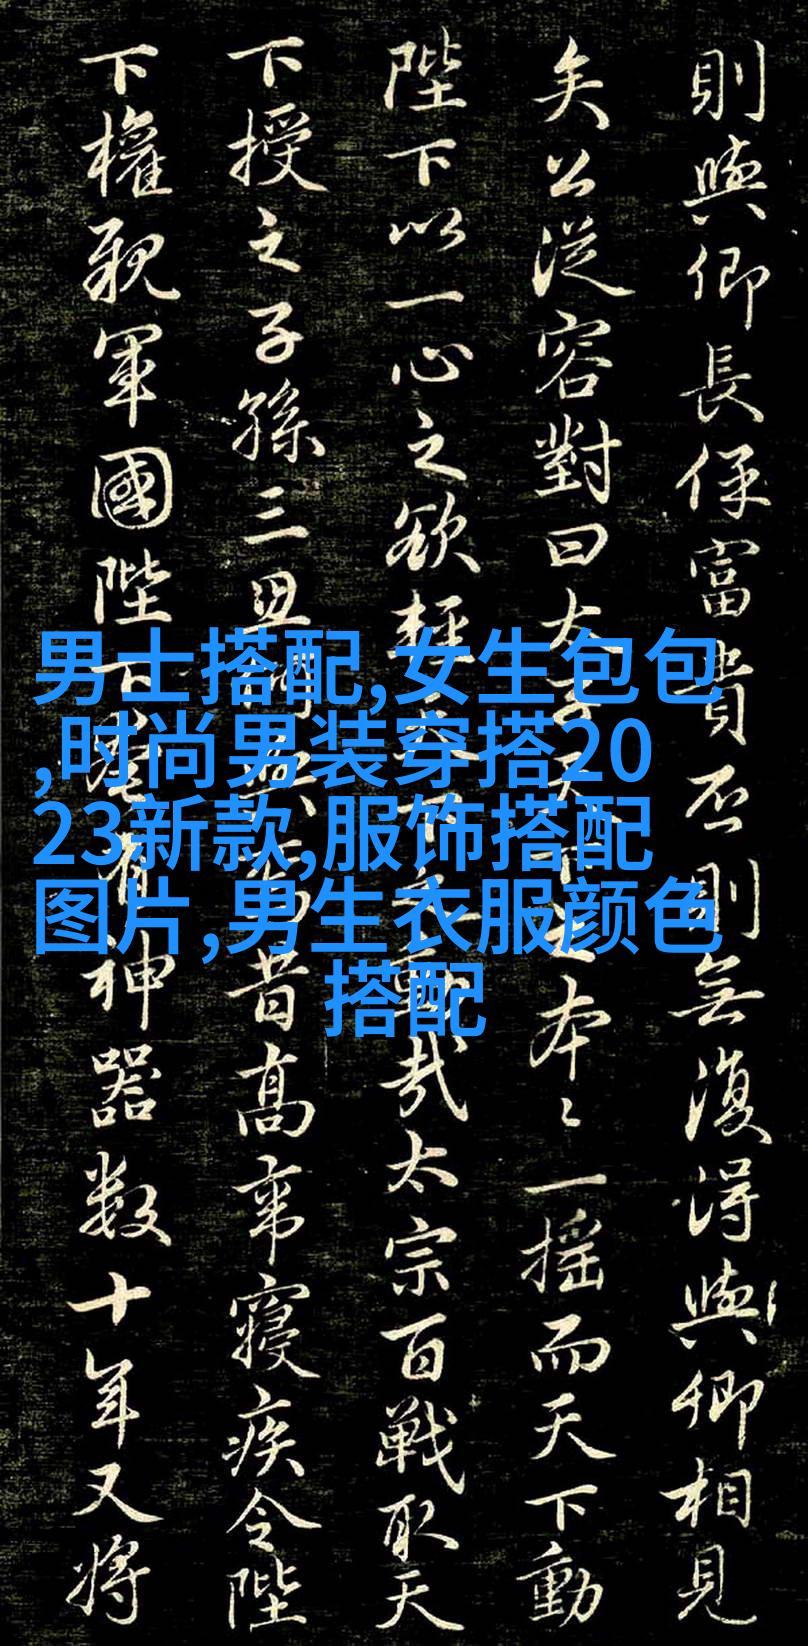 則與卿長保富貴否則無復得與卿相見
矣公從容對曰太天本〻一搖而天下動
陛下以一心之欲輕動哉太宗百戰取天
下授之子孫三昔高帝寢疾令陛
下權親軍國陛下有神器數十年又將
男士搭配,女生包包
,时尚男装穿搭20
23新款,服饰搭配
图片,男生衣服颜色
搭配